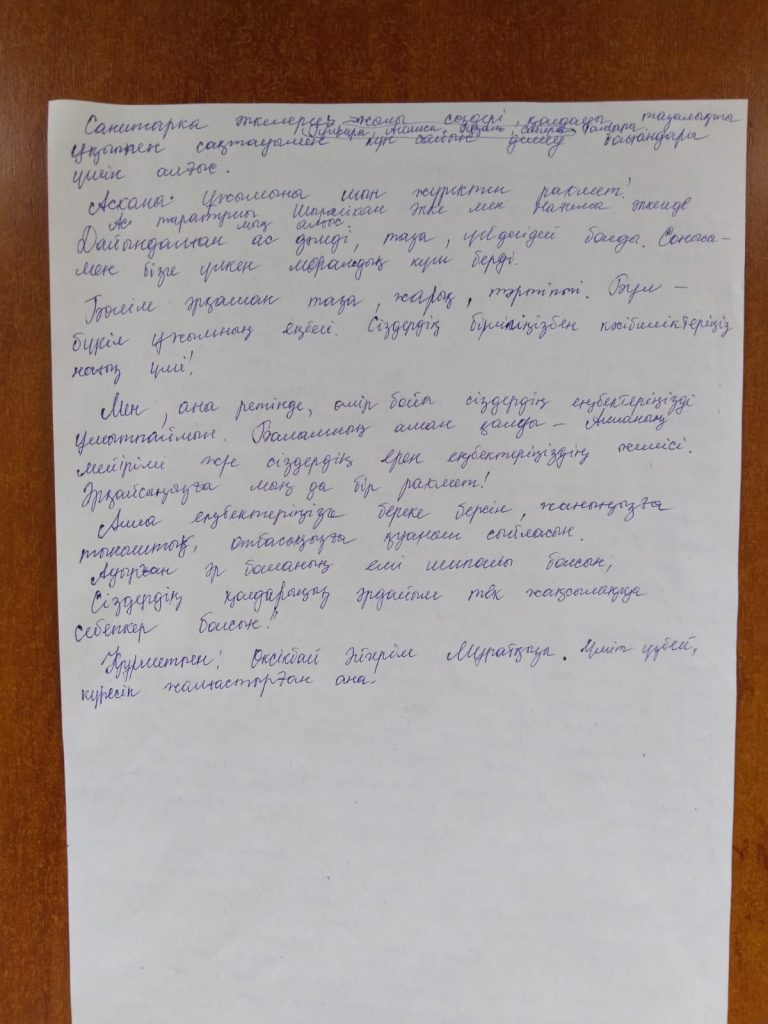 Санитарка әпкелердің жылы сөздері, қолдауы, тазалықты
Гүлнара, Сабира
ұқыппен сақтауымен күн сайын дем
үшін алғыс.
Асхана ұжымына шын жүректен рахмет!
Ас таратушы Шырайхан әпке мен Назима әпкеиде
мың алғыс.
Дайындалған ас дәмді, таза, үйдегідей болды. Соныса–
мен бізге үлкен моральдық күш берді.
Бөлім әрқашан таза, жарық, тәртіпті. Бұл –
бүкіл ұжымның еңбегі. Сіздердің бірлігіңізбен кәсібиліктеріңіз
нағыз үлгі!
Мен, ана ретінде, өмір бойы сіздердің еңбектеріңізді
ұмытпаймын. Баламның аман қалды – Алланың
мейірімі және сіздердің ерен еңбектеріңіздің жемісі.
Әрқайсыңызға мың да бір рахмет!
Алла еңбектеріңізге береке берсін, жаныңызға
тыныштық, отбасыңызға қуаныш сыйласын.
Ауырған әр баланың емі шипалы болсын,
Сіздердің қолдарыңыз әрдайым тек жақсылыққа
себепкер болсын!
Құрметпен! Өксікбай Әйгерім Мұратқызы. Үміт үзбей,
күресін жалғастырған ана!